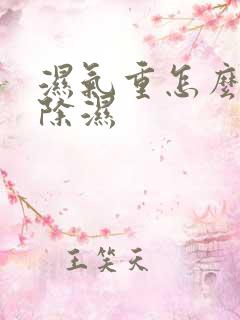 濕氣重怎麼
除濕
王笑天